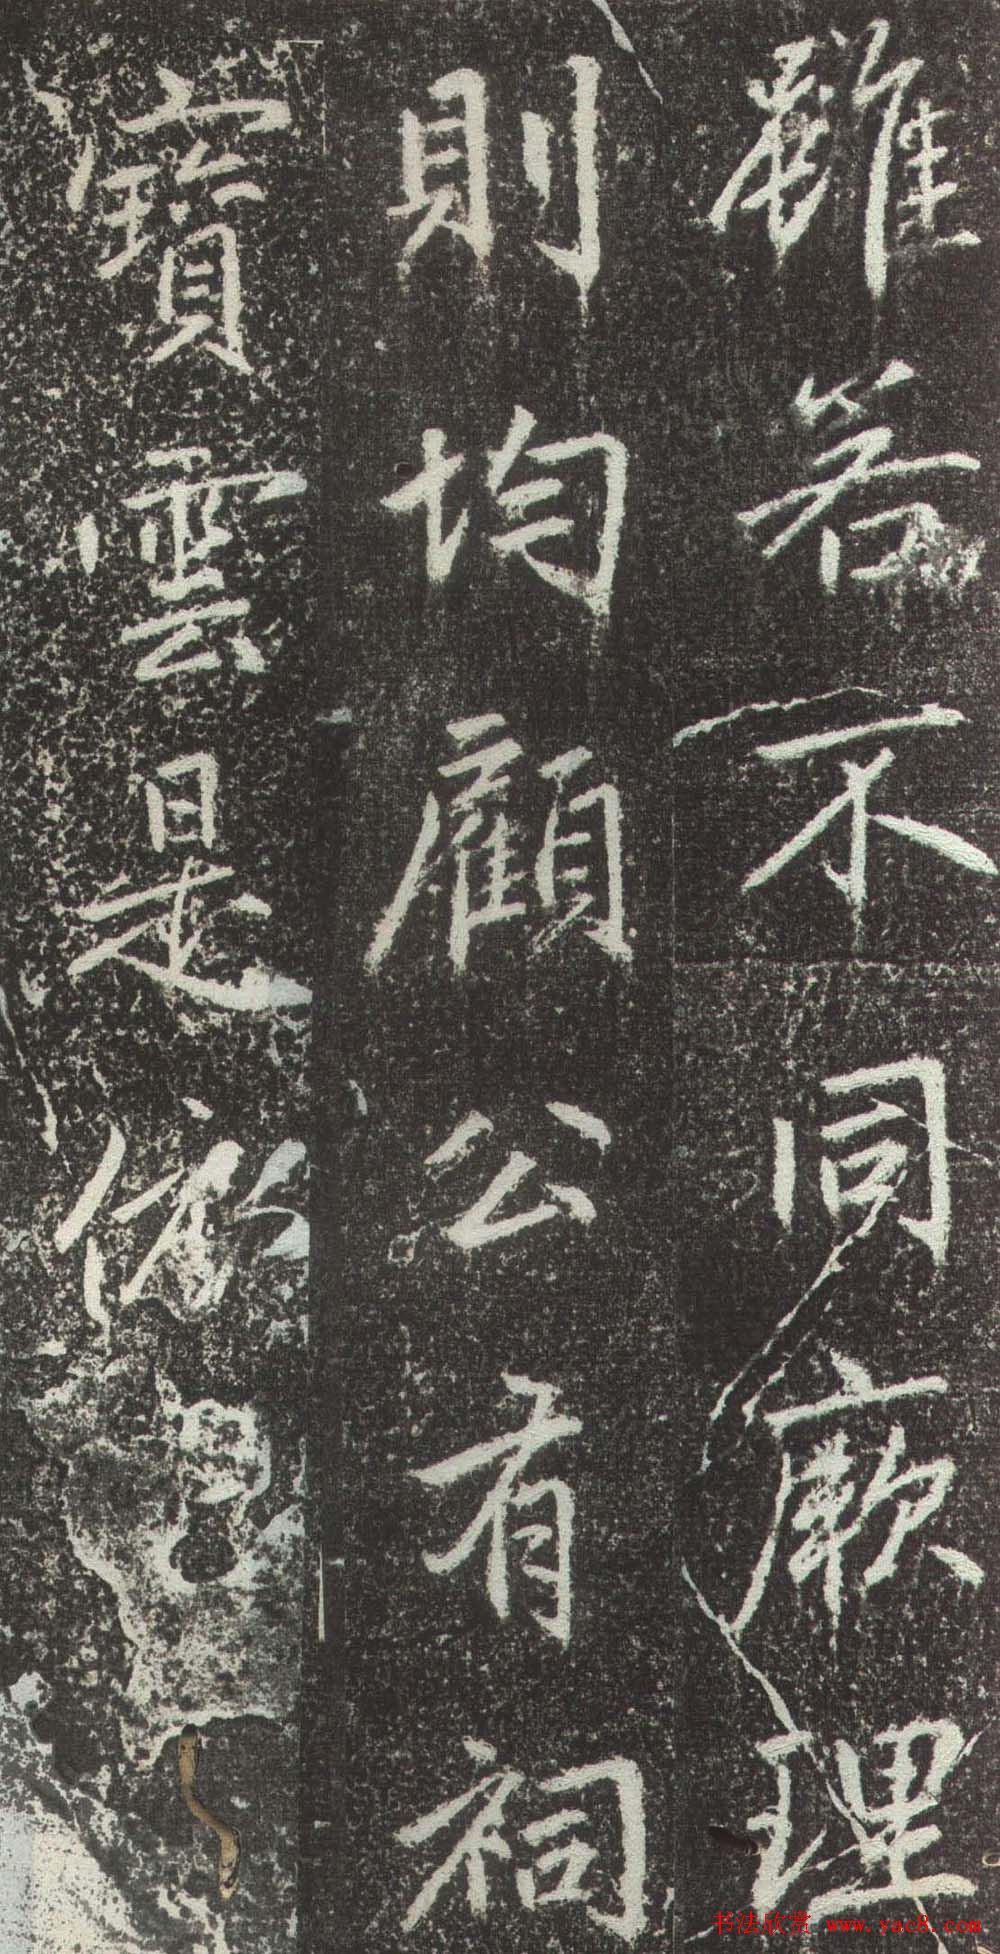 雖若不同厥理
則均顧公有祠
寶雲是
书法欣赏 www.yac8.com